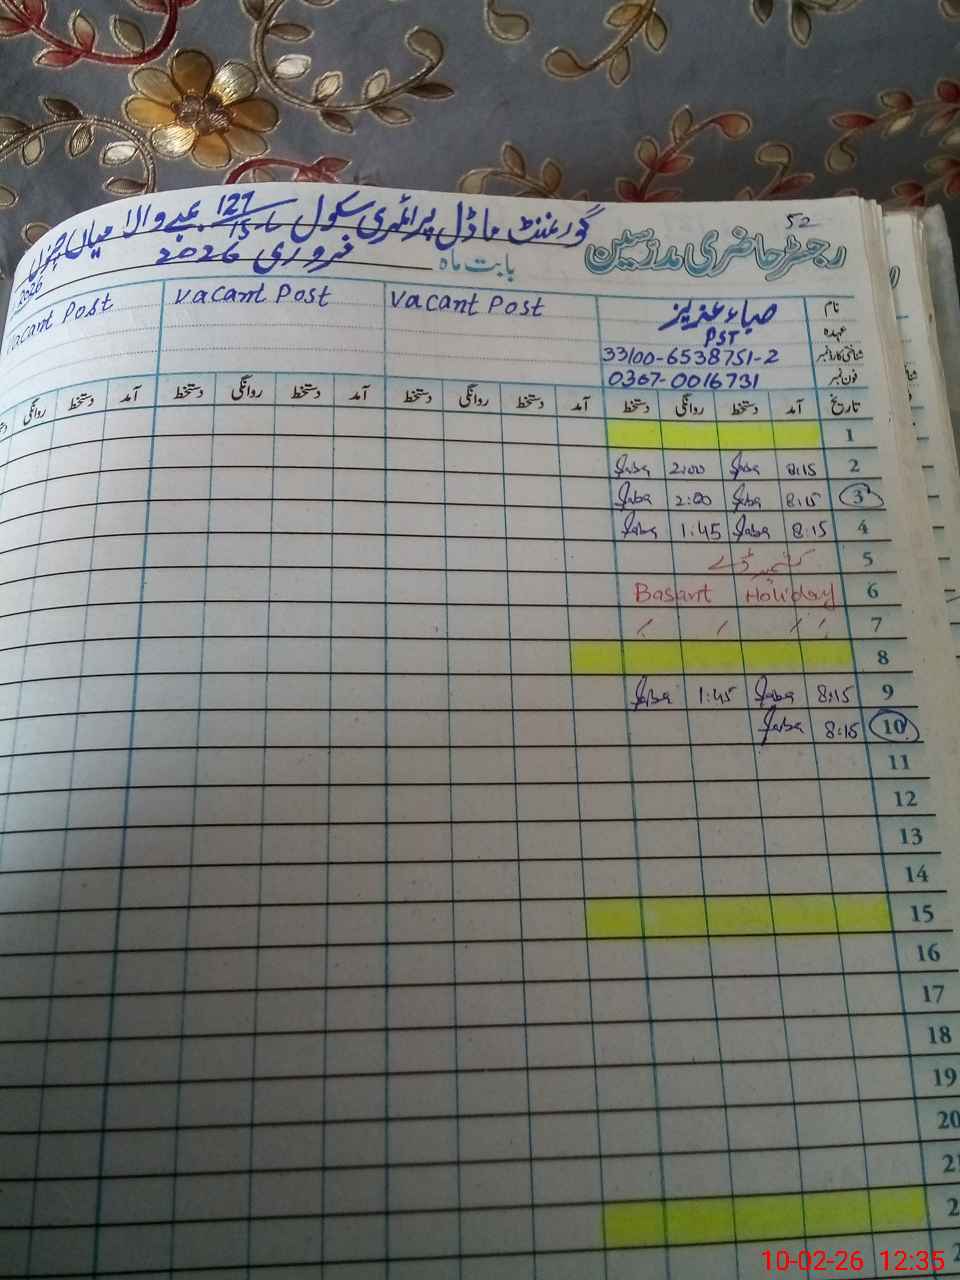 52
گورنمنٹ ماڈل پرائمری سکول 127/15 والا میاں چنوں
رجسٹر حاضری مدرسین
بابت ماہ فروری 2026
2026
نام صباء عزیز Vacant Post Vacant Post Vacant Post
عہدہ PST
شناختی کارڈ نمبر 33100-6538751-2
فون نمبر 0307-0016731
تاریخ آمد دستخط روانگی دستخط آمد دستخط روانگی دستخط آمد دستخط روانگی دستخط آمد دستخط روانگی
1
2 8:15 Saba 2:00 Saba
3 8:15 Saba 2:00 Saba
4 8:15 Saba 1:45 Saba
5 کشمیر ڈے
6 Basant Holiday
7
8
9 8:15 Saba 1:45 Saba
10 8:15 Saba
11
12
13
14
15
16
17
18
19
20
10-02-26 12:35